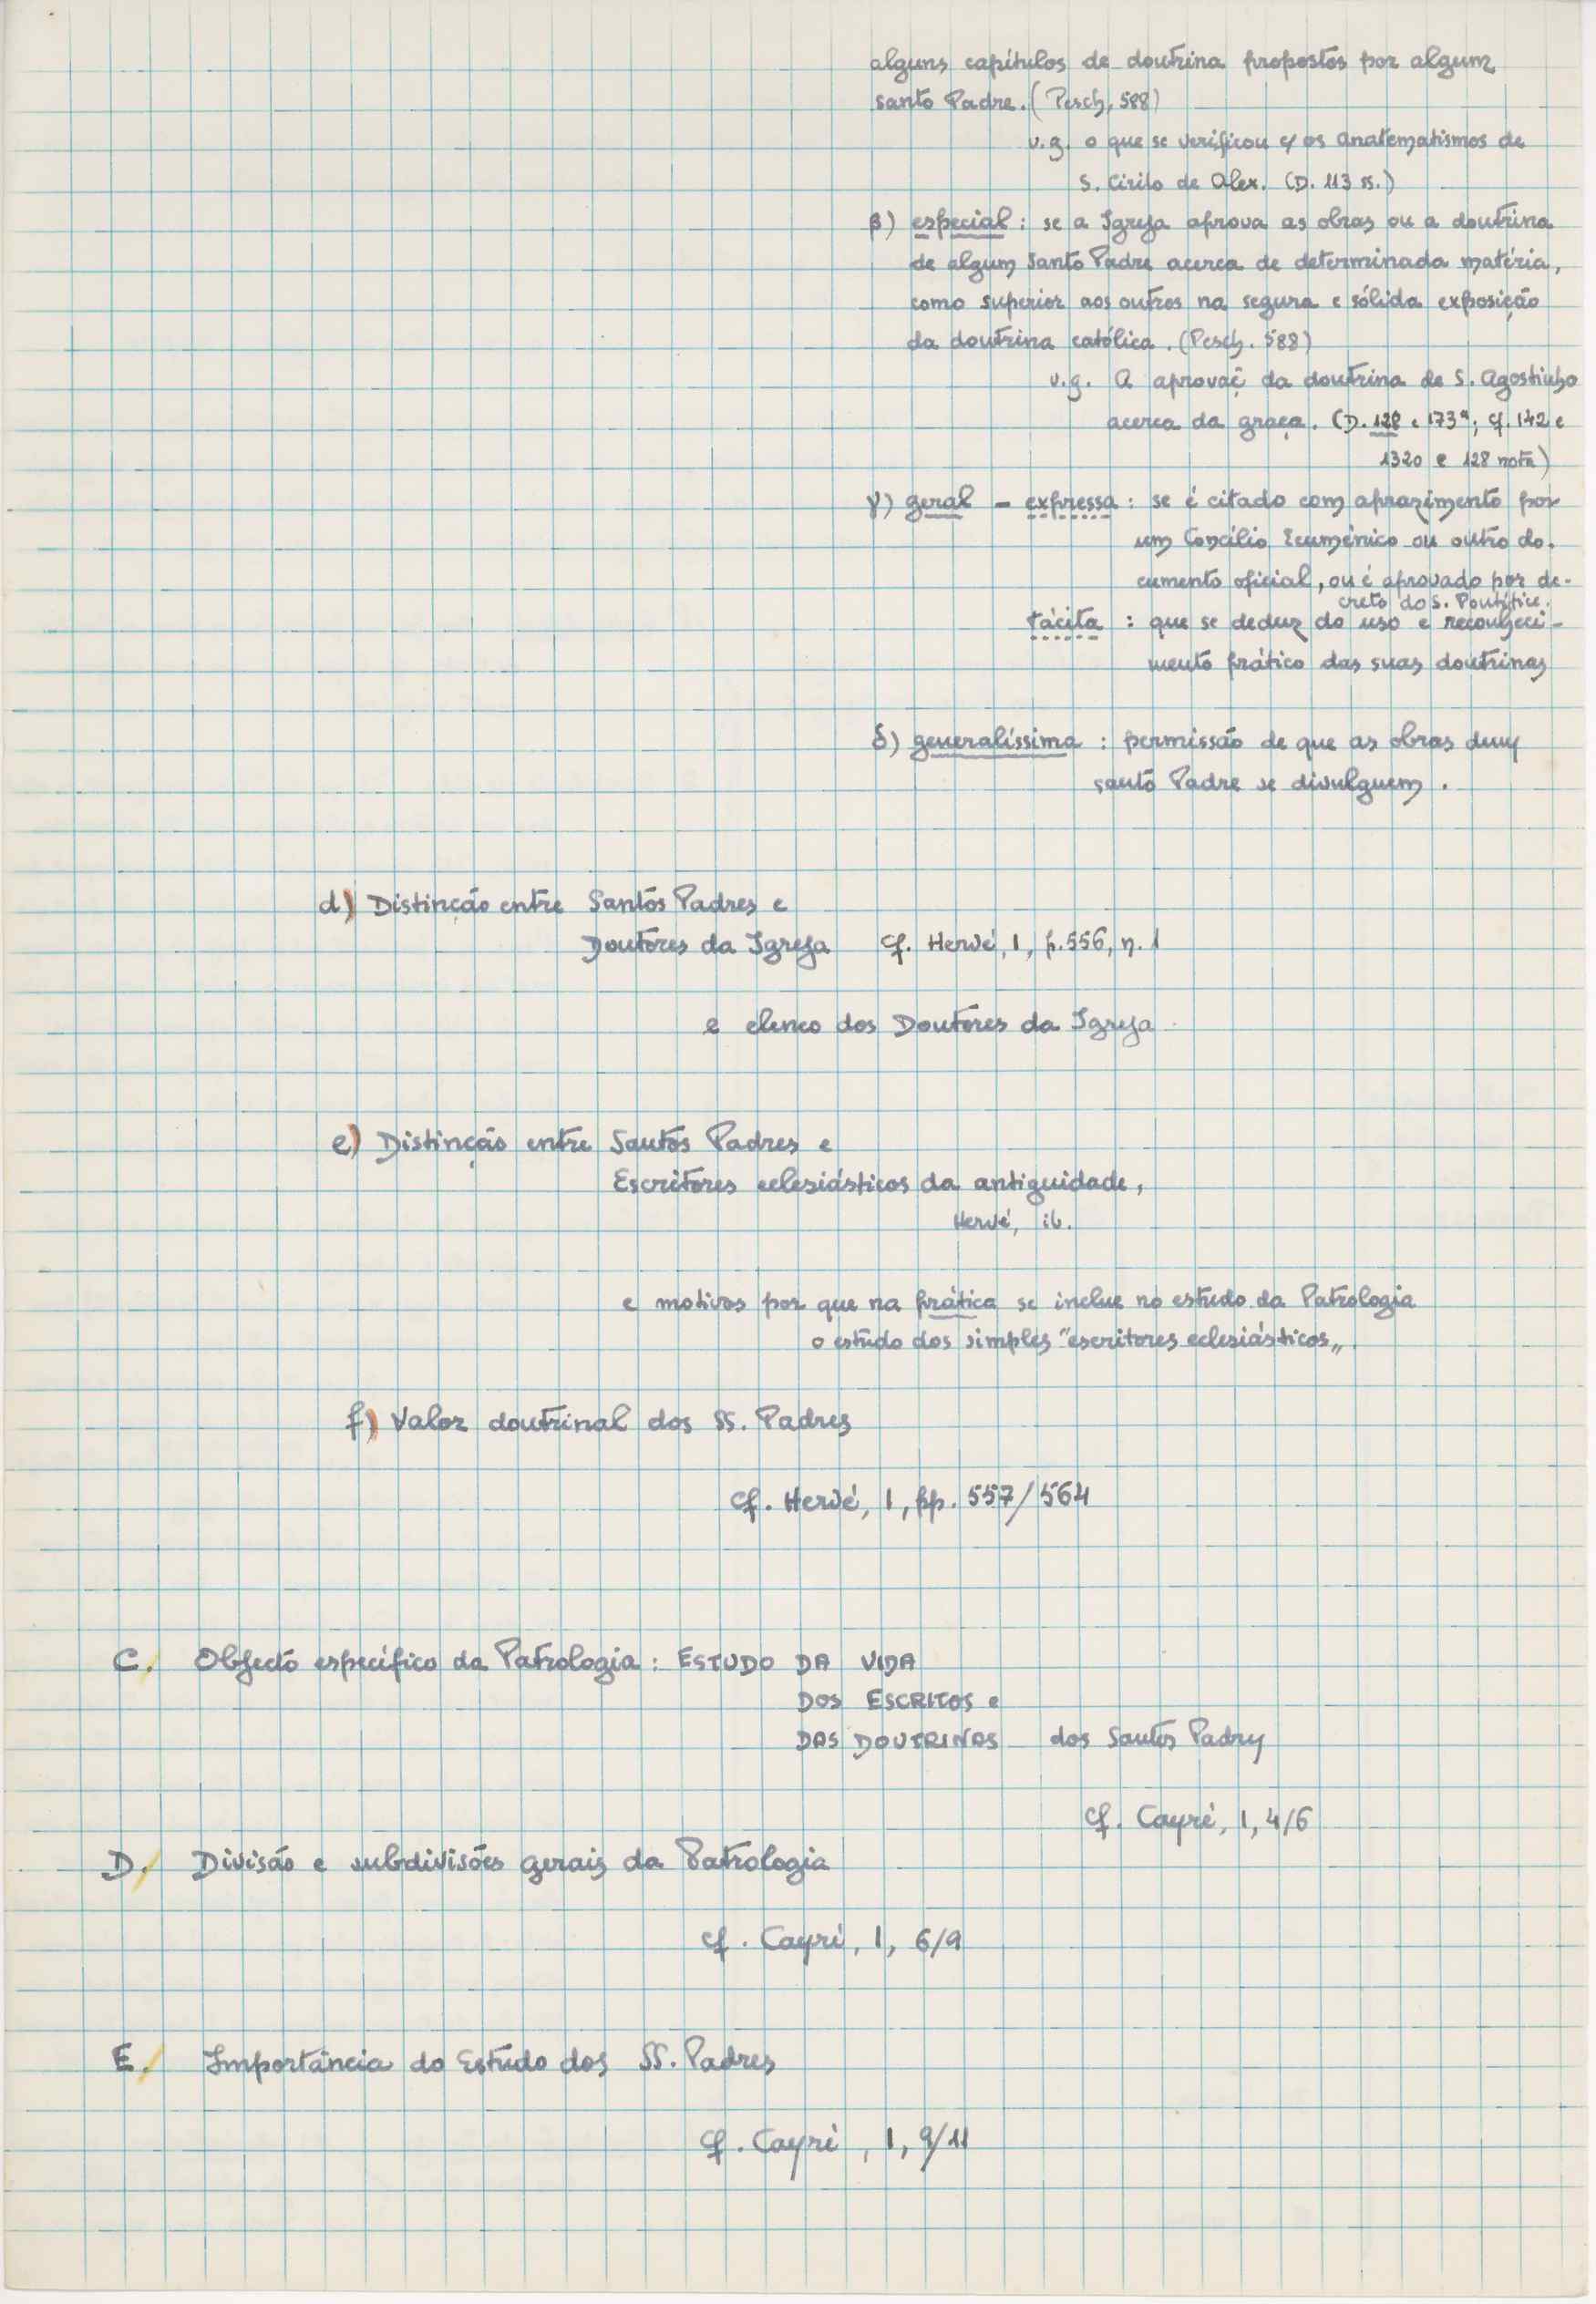 alguns capítulos de doutrina propostos por algum
santo Padre. (Pesch, 588)
v.g. o que se verificou c/ os anatematismos de
S. Cirilo de Alex. (D. 113 ss.)
β) especial : se a Igreja aprova as obras ou a doutrina
de algum Santo Padre acerca de determinada matéria,
como superior aos outros na segura e sólida exposição
da doutrina católica. (Pesch. 588)
v.g. A aprovaç̃ da doutrina de S. Agostinho
acerca da graça. (D. 128 e 173ª; cf. 142 e
1320 e 128 nota)
γ) geral - expressa : se é citado com aprazimento por
um Concílio Ecuménico ou outro do-
cumento oficial, ou é aprovado por de-
creto do S. Pontífice.
tácita : que se deduz do uso e reconheci-
mento prático das suas doutrinas
δ) generalíssima : permissão de que as obras dum
santo Padre se divulguem .
d) Distinção entre Santos Padres e
Doutores da Igreja cf. Hervé, 1, p. 556, n. 1
e elenco dos Doutores da Igreja
e) Distinção entre Santos Padres e
Escritores eclesiásticos da antiguidade,
Hervé, ib.
e motivos por que na prática se inclue no estudo da Patrologia
o estudo dos simples "escritores eclesiásticos„
f) Valor doutrinal dos SS. Padres
cf. Hervé, 1, pp. 557/564
C. Objecto específico da Patrologia : ESTUDO DA VIDA
DOS ESCRITOS e
DAS DOUTRINAS dos Santos Padres
cf. Cayré, 1, 4/6
D. Divisão e subdivisões gerais da Patrologia
cf. Cayré, 1, 6/9
E. Importância do Estudo dos SS. Padres
cf. Cayré , 1, 9/11